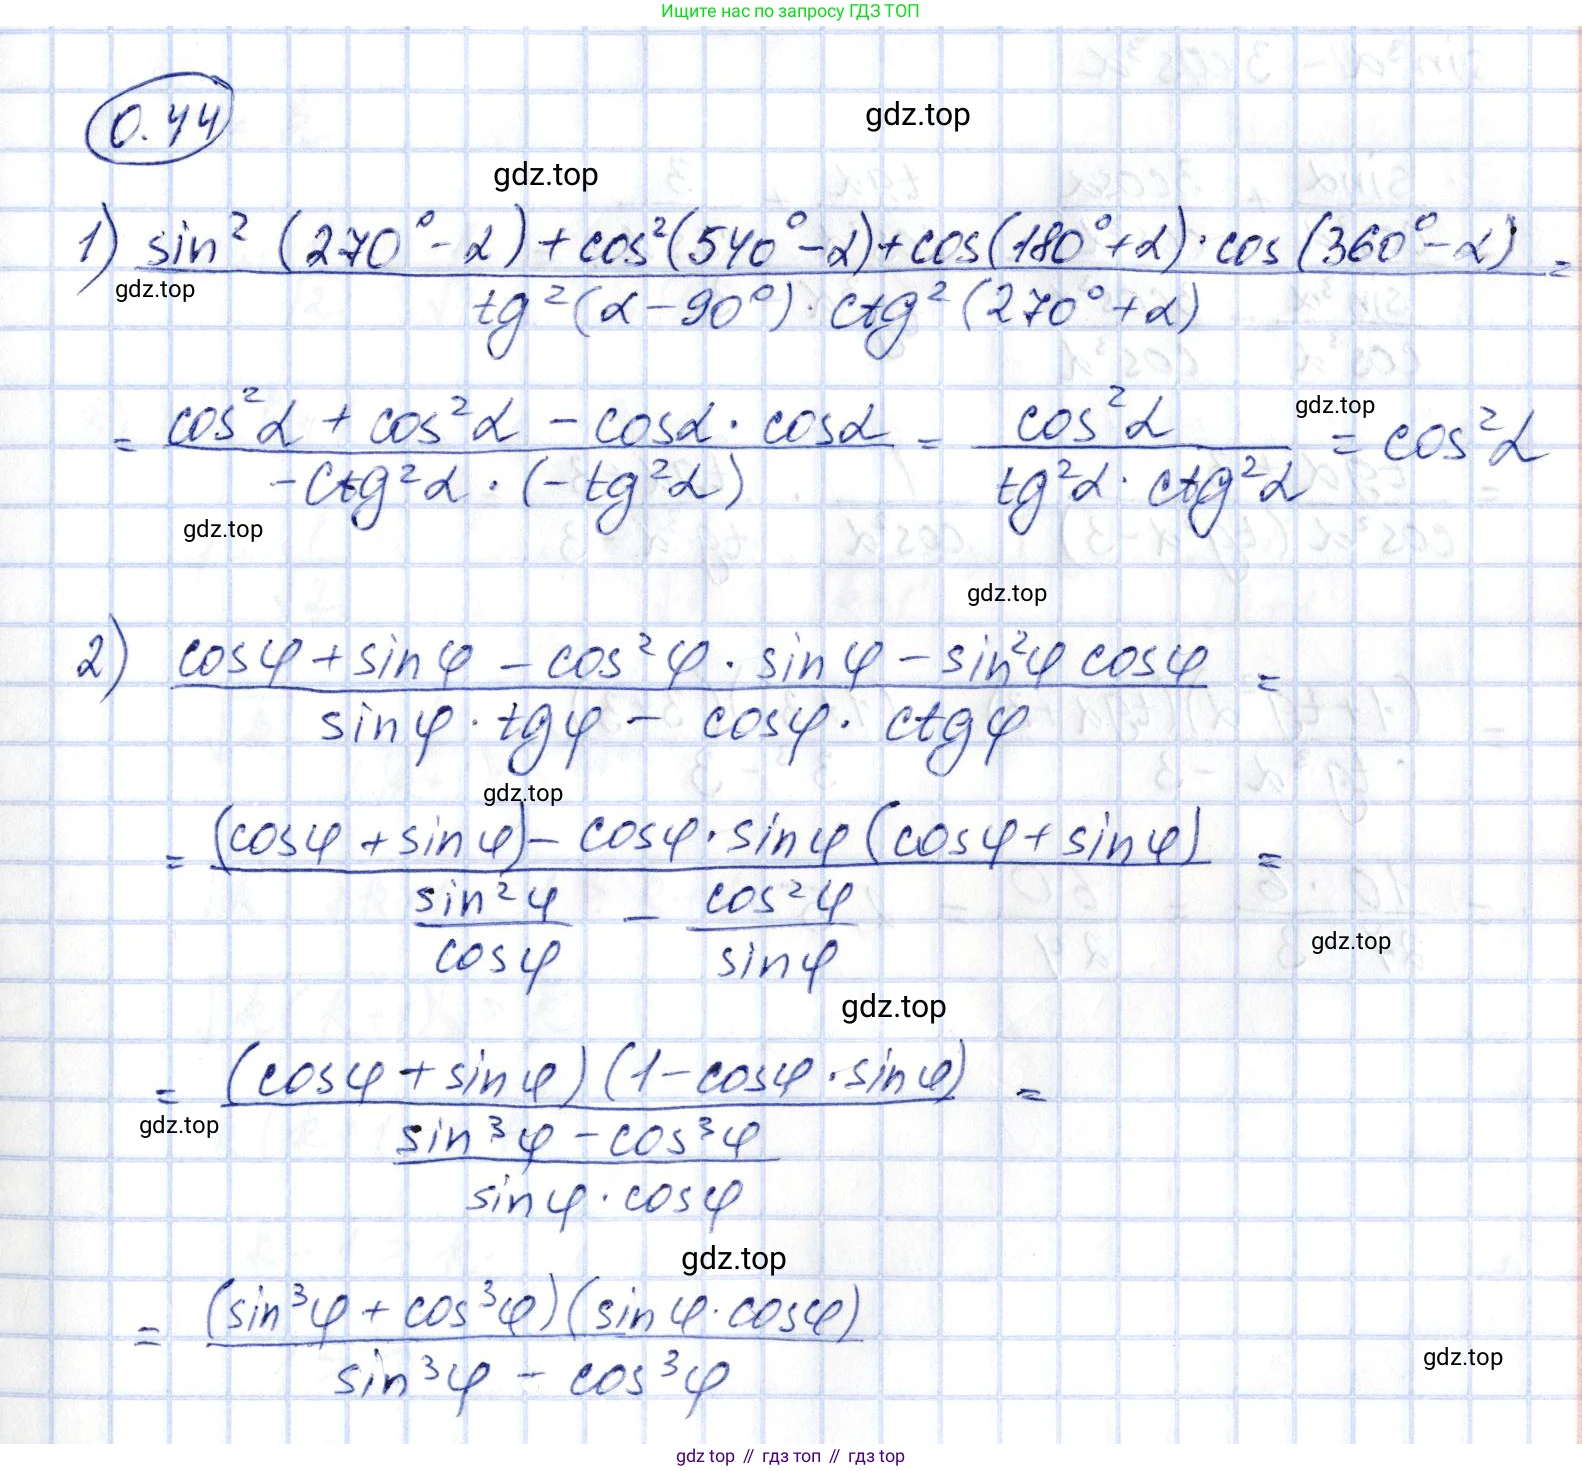 Ищите нас по запросу ГДЗ ТОП
0.44
gdz.top
gdz.top
1) (sin² (270° - α) + cos² (540° - α) + cos (180° + α) · cos (360° - α)) / (tg² (α - 90°) · ctg² (270° + α)) =
gdz.top
= (cos² α + cos² α - cos α · cos α) / (- ctg² α · (- tg² α)) = cos² α / (tg² α · ctg² α) = cos² α
gdz.top
gdz.top
gdz.top
2) (cos φ + sin φ - cos² φ · sin φ - sin² φ cos φ) / (sin φ · tg φ - cos φ · ctg φ) =
gdz.top
= ((cos φ + sin φ) - cos φ · sin φ (cos φ + sin φ)) / (sin² φ / cos φ - cos² φ / sin φ) =
gdz.top
gdz.top
= (cos φ + sin φ) (1 - cos φ · sin φ) / ((sin³ φ - cos³ φ) / (sin φ · cos φ)) =
gdz.top
gdz.top
= (sin³ φ + cos³ φ) (sin φ · cos φ) / (sin³ φ - cos³ φ)
gdz.top
gdz top // гдз топ // gdz top